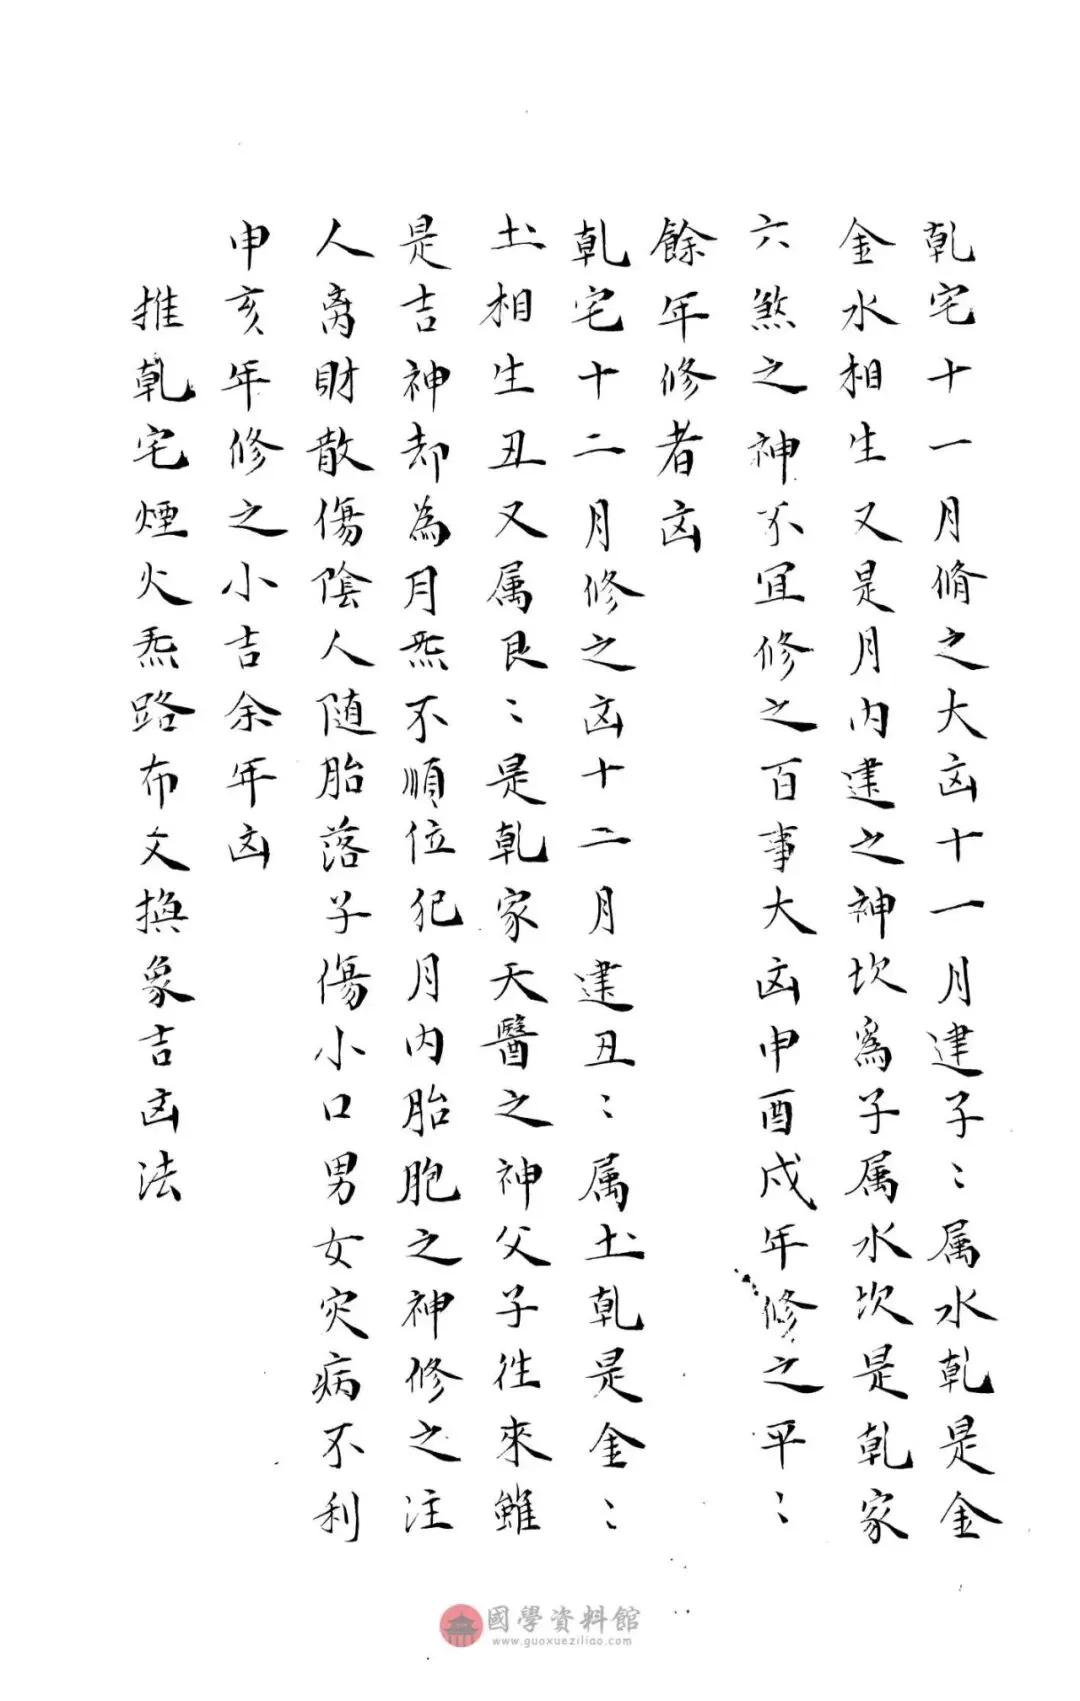 乹宅十一月脩之大凶十一月建子〻属水乹是金
金水相生又是月内建之神坎為子属水坎是乹家
六煞之神不宜修之百事大凶申酉戌年修之平〻
餘年修者凶
乹宅十二月修之凶十二月建丑〻属土乹是金〻
土相生丑又属艮〻是乹家天醫之神父子往來雖
是吉神却為月炁不順位犯月内胎胞之神修之注
人离財散傷陰人随胎落子傷小口男女灾病不利
申亥年修之小吉余年凶
推乹宅煙火炁路布文撫象吉凶法
國學資料館
www.guoxueziliao.com